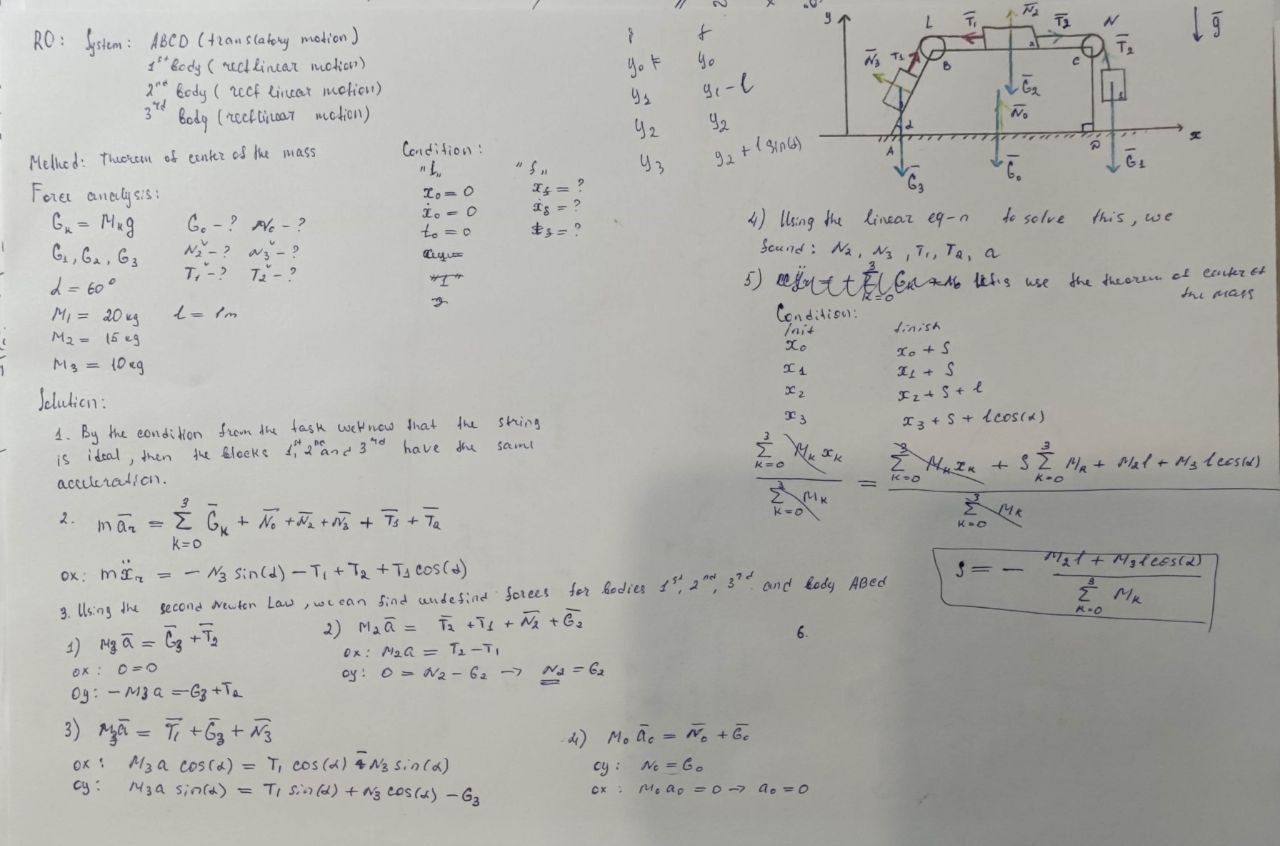 RO: System: ABCD (translatory motion)
1st body (rectlinear motion)
2nd body (rectlinear motion)
3rd body (rectlinear motion)
Method: Theorem of center of the mass
Force analysis:
G_k = M_k g G_0 - ? N_0 - ?
G_1, G_2, G_3 N_2 - ? N_3 - ?
α = 60° T_1 - ? T_2 - ?
M_1 = 20 kg l = 1m
M_2 = 15 kg
M_3 = 10 kg
Condition:
x_0 = 0 x_f = ?
ẋ_0 = 0 ẋ_f = ?
t_0 = 0 t_f = ?
i f
y_0 y_0
y_1 y_1 - l
y_2 y_2
y_3 y_2 + l sin(α)
y L T̄_1 N̄_2 T̄_2 N ḡ
N̄_3 T_1 B 2 C T̄_2
Ḡ_2 N̄_0 1
3 α A D x
Ḡ_3 Ḡ_0 Ḡ_1
Solution:
1. By the condition from the task we know that the string
is ideal, then the blocks 1st, 2nd and 3rd have the same
acceleration.
2. m ā_r = Σ_{k=0}^{3} Ḡ_k + N̄_0 + N̄_2 + N̄_3 + T̄_1 + T̄_2
ox: m ẍ_r = - N_3 sin(α) - T_1 + T_2 + T_1 cos(α)
3. Using the second Newton Law, we can find undefind forces for bodies 1st, 2nd, 3rd and body ABCD
1) M_3 ā = Ḡ_3 + T̄_2
ox: 0 = 0
oy: - M_3 a = -G_3 + T_2
2) M_2 ā = T̄_2 + T̄_1 + N̄_2 + Ḡ_2
ox: M_2 a = T_2 - T_1
oy: 0 = N_2 - G_2 → N_2 = G_2
3) M_3 ā = T̄_1 + Ḡ_3 + N̄_3
ox: M_3 a cos(α) = T_1 cos(α) - N_3 sin(α)
oy: M_3 a sin(α) = T_1 sin(α) + N_3 cos(α) - G_3
4) M_0 ā_0 = N̄_0 + Ḡ_0
oy: N_0 = G_0
ox: M_0 a_0 = 0 → a_0 = 0
4) Using the linear eq-n to solve this, we
found: N_2, N_3, T_1, T_2, a
5) let's use the theorem of center of
the mass
Condition:
init finish
x_0 x_0 + S
x_1 x_1 + S
x_2 x_2 + S + l
x_3 x_3 + S + l cos(α)
Σ_{k=0}^{3} M_k x_k / Σ_{k=0}^{3} M_k = (Σ_{k=0}^{3} M_k x_k + S Σ_{k=0}^{3} M_k + M_2 l + M_3 l cos(α)) / Σ_{k=0}^{3} M_k
S = - (M_2 l + M_3 l cos(α)) / Σ_{k=0}^{3} M_k
6.